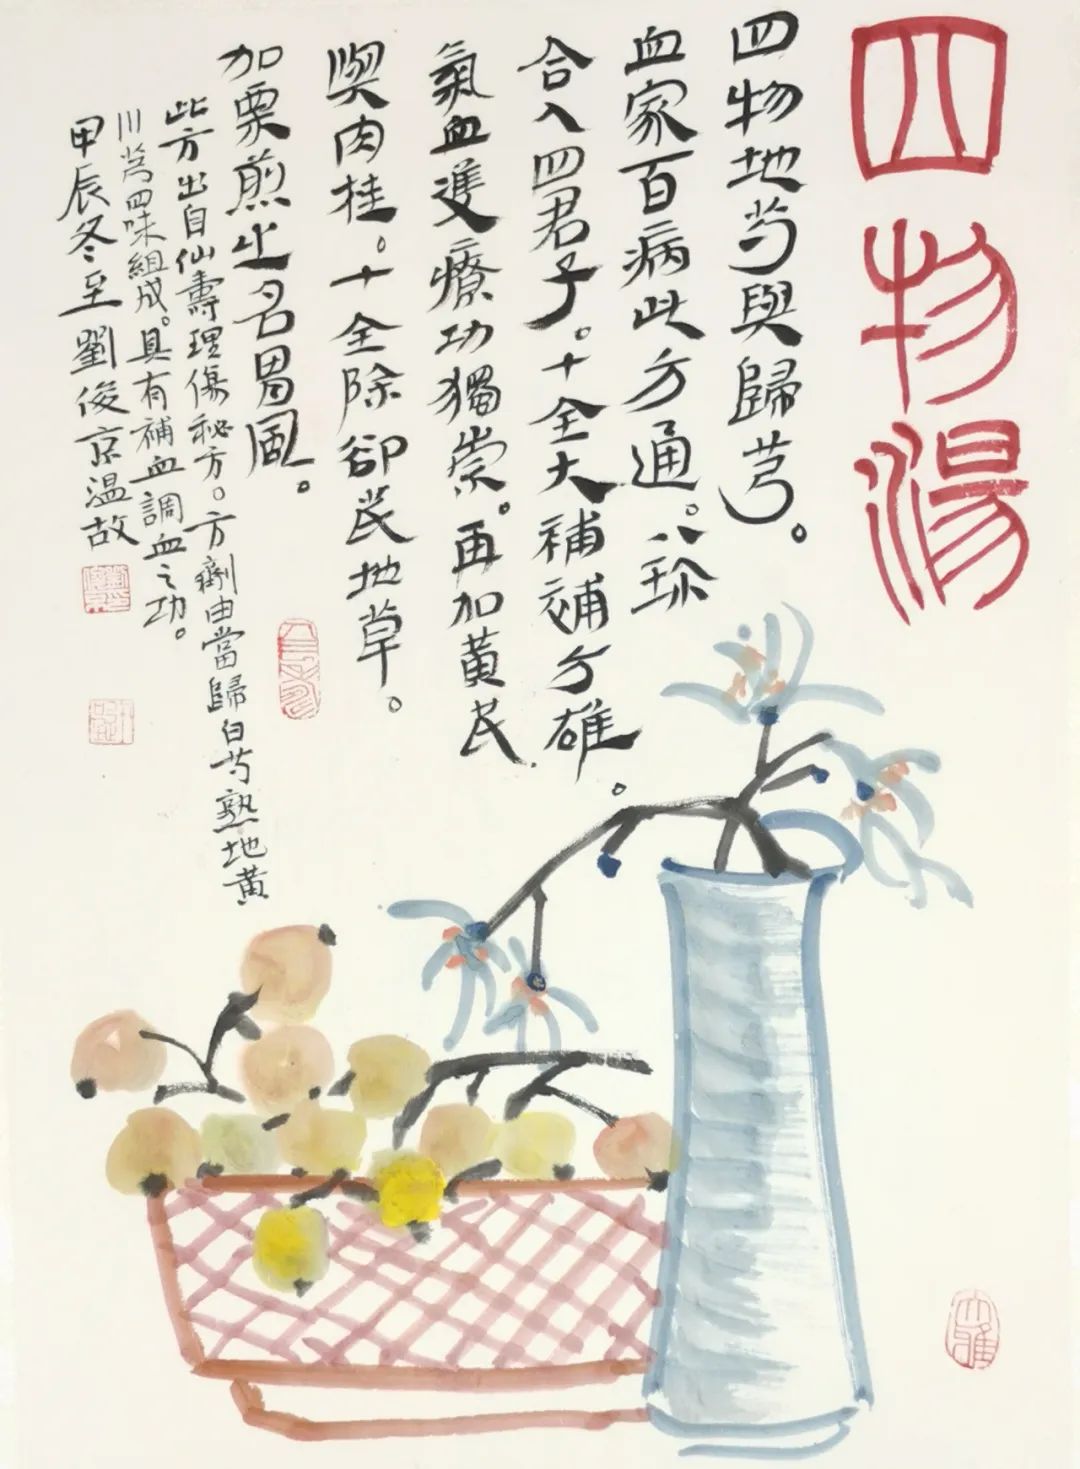 四物湯
四物地芍與歸芎。
血家百病此方通。八珍
合入四君子。十全大補補方雄。
氣血雙療功獨崇。再加黃芪
與肉桂。十全除卻芪地草。
加粟煎之名胃風。
此方出自仙壽理傷秘方。方劑由當歸白芍熟地黃
川芎四味組成。具有補血調血之功。
甲辰冬至劉俊京溫故